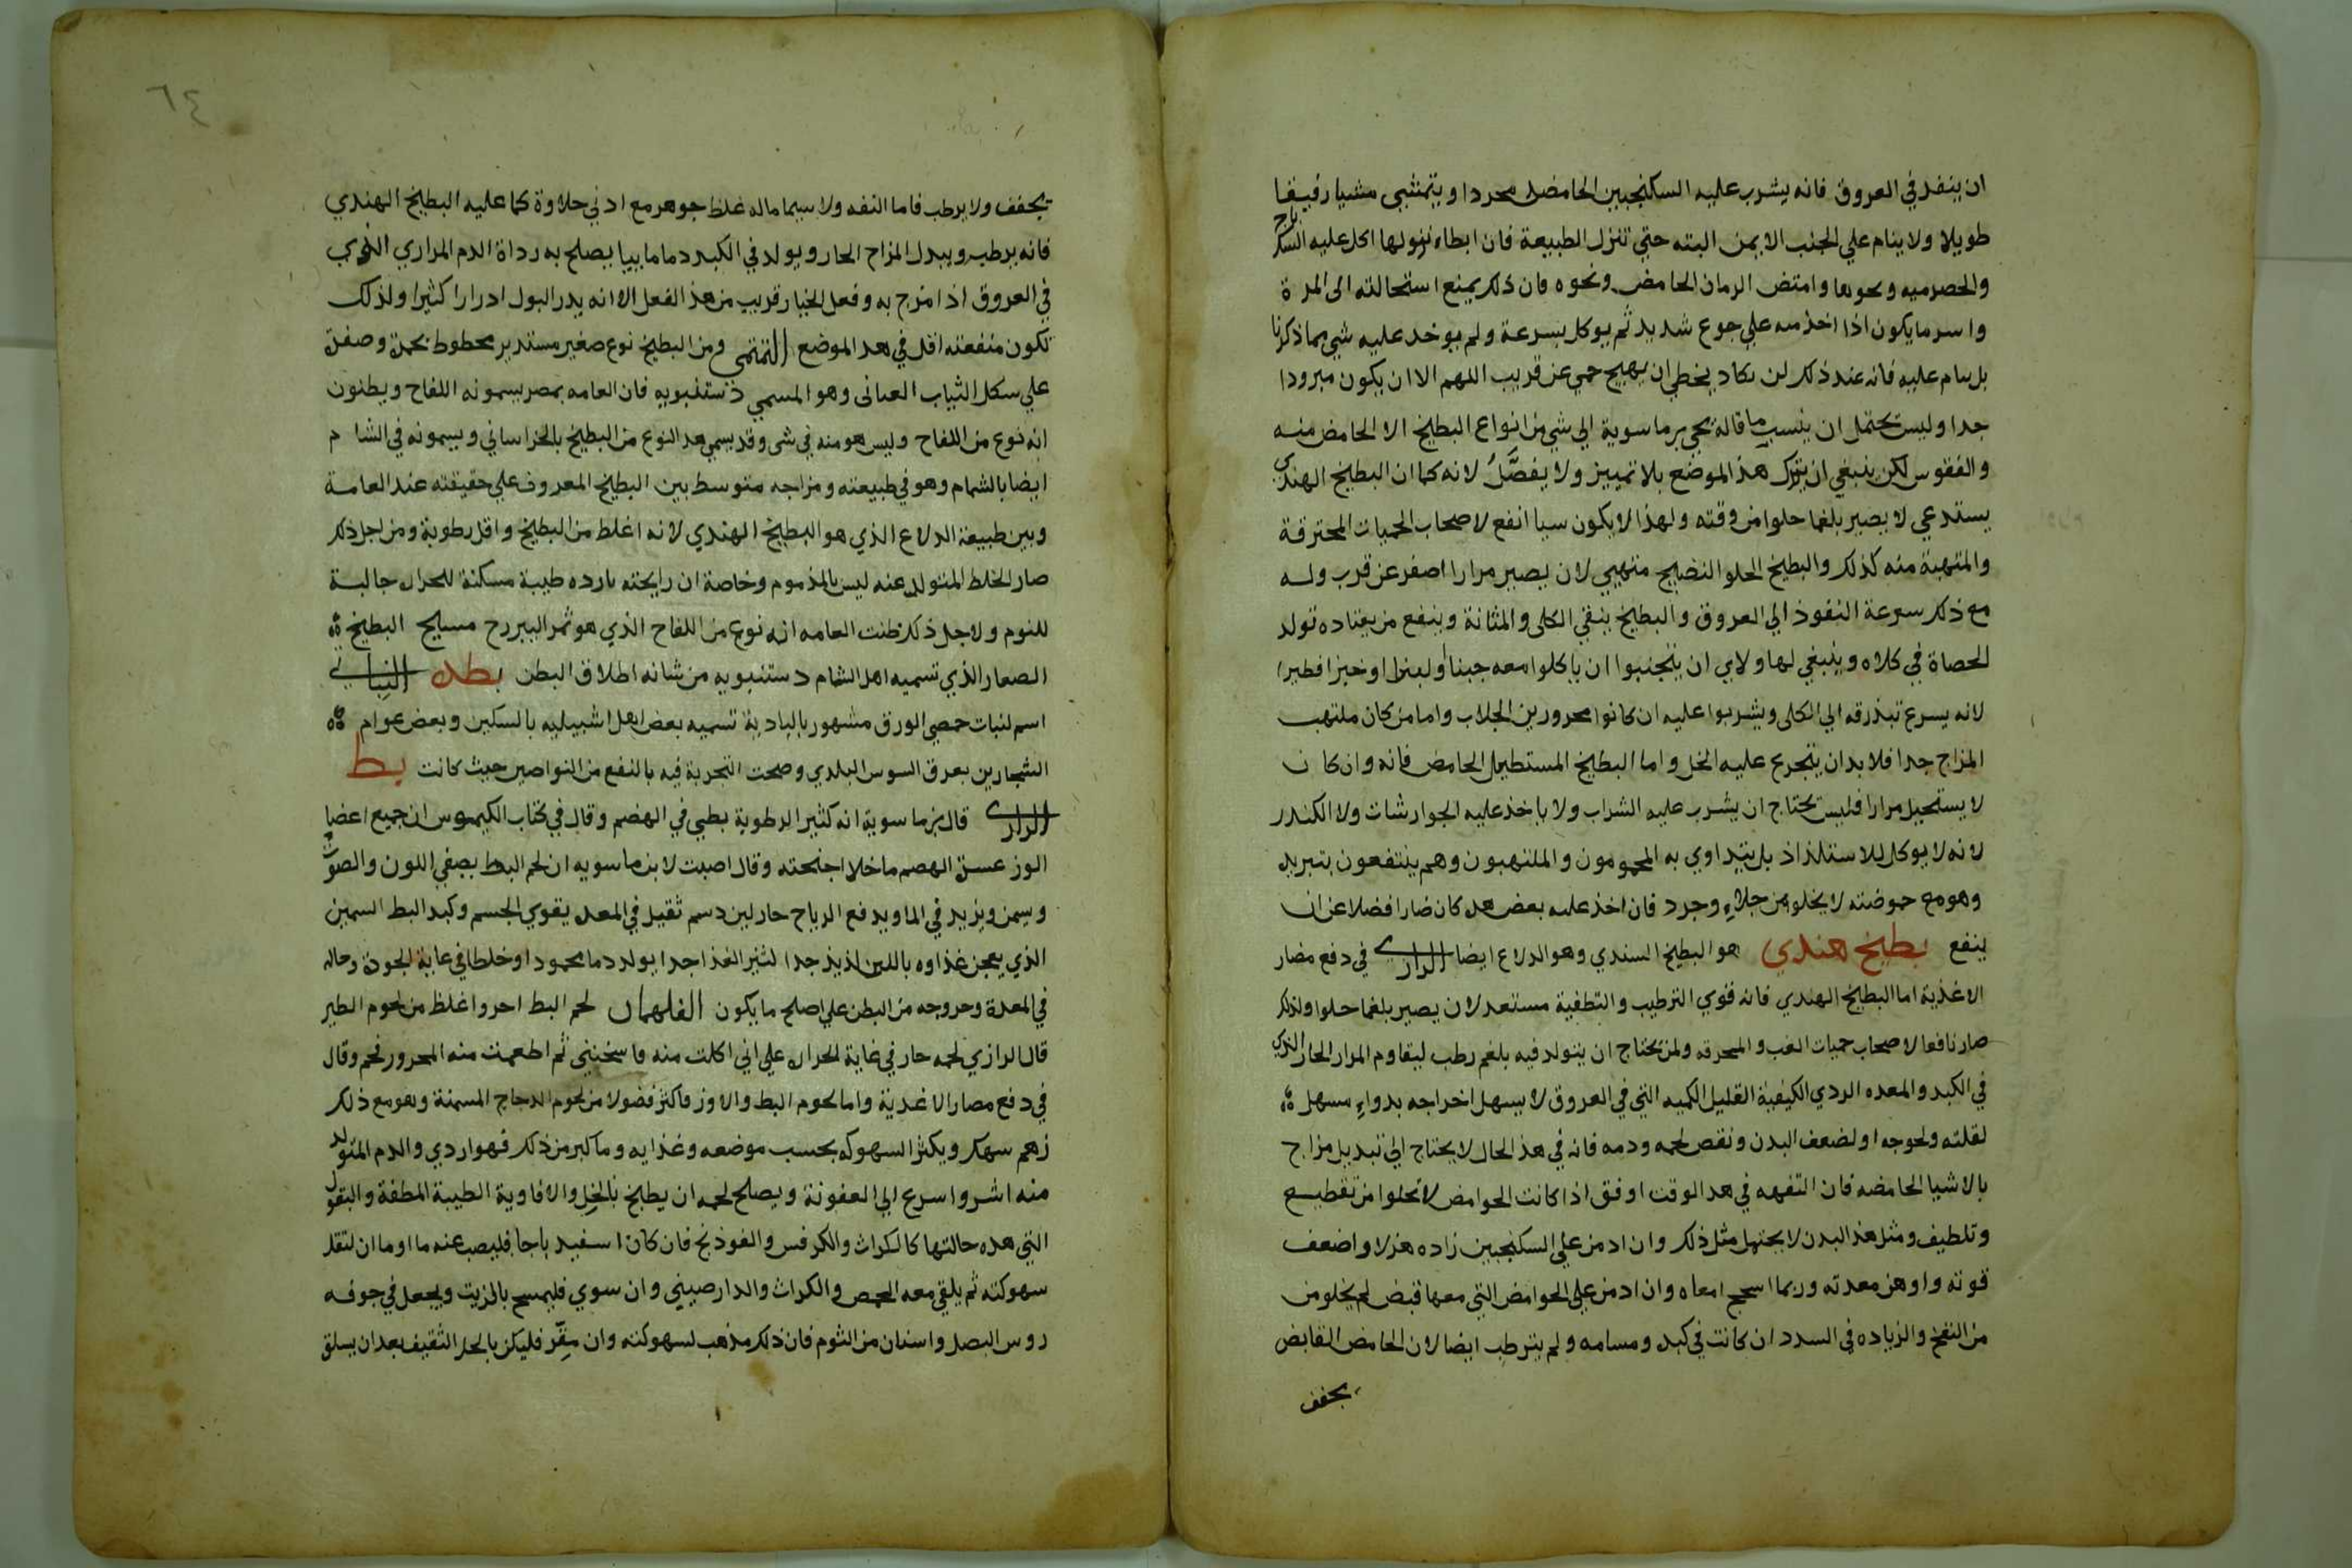 ان ينفد في العروق فانه يشرب عليه السكنجبين الحامض مجردا ويتمشي مشيا رفيقا
طويلا ولا ينام علي الجنب الايمن البته حتي تنزل الطبيعة فان ابطاء نزولها اكل عليه السكباج
والحصرميه ونحوها وامتض الرمان الحامض ونحوه فان ذلك يمنع استحالته الى المرة
واسر ما يكون اذا اخذ منه علي جوع شديد ثم يوكل بسرعة ولم يوخد عليه شي مما ذكرنا
بل ينام عليه فانه عند ذلك لن يكاد يخطي ان يهيج حمي عن قريب اللهم الا ان يكون مبرودا
جدا وليس يحتمل ان ينسب ما قاله يحي بن ماسوية الي شي من انواع البطيخ الا الحامض منه
والفقوس لكن ينبغي ان يترك هذا الموضع بلا تمييز ولا يفصل لانه كما ان البطيخ الهندي
يستدعي لا يصير بلغما حلوا من وقته ولهذا لا يكون سيا انفع لاصحاب الحميات المحترقة
والمتهبة منه كذلك والبطيخ الحلو النضيج متهيي لان يصير مرارا اصفر عن قرب وله
مع ذلك سرعة النفوذ الي العروق والبطيخ ينقي الكلى والمثانة وينفع من يعتاده تولد
الحصاة في كلاه وينبغي لها ولاي ان يتجنبوا ان ياكلوا معه جبنا او لبنا او خبزا فطيرا
لانه يسرع تبذرقه الي الكلى ويشربوا عليه ان كانوا محرورين الجلاب واما من كان ملتهب
المزاج جدا فلا بد ان يتجرع عليه الخل واما البطيخ المستطيل الحامض فانه وان كان
لا يستحيل مرارا فليس يحتاج ان يشرب عليه الشراب ولا ياخذ عليه الجوارشات ولا الكندر
لانه لا يوكل للاستلذاذ بل يتداوي به المحمومون والملتهبون وهم ينتفعون بتبريد
وهو مع حموضته لا يخلو من جلاء وجرد فان اخذ عليه بعض هده كان ضارا فضلا عن ان
ينفع بطيخ هندي هو البطيخ السندي وهو الدلاع ايضا الرازي في دفع مضار
الاغذية اما البطيخ الهندي فانه قوي الترطيب والتطفية مستعد لان يصير بلغما حلوا ولذلك
صار نافعا لاصحاب حميات الغب والمحرقه ولمن يحتاج ان يتولد فيه بلغم رطب ليقاوم المرار الحار الذي
في الكبد والمعده الردي الكيفية القليل الكميه التي في العروق لا يسهل اخراجه بدواء مسهل
لقلته ولحوجه او لضعف البدن ونقص لحمه ودمه فانه في هذ الحال لا يحتاج الي تبديل مزاج
بالاشيا الحامضه فان التفهه في هدا الوقت اوفق اذا كانت الحوامض لا تخلوا من تقطيع
وتلطيف ومثل هذا البدن لا يحتمل مثل ذلك وان ادمن علي السكنجبين زاده هزلا واضعف
قوته واوهن معدته وربما اسحج امعاه وان ادمن علي الحوامض التي معها قبض لم يخلو من
من النفخ والزياده في السدد ان كانت في كبد ومسامه ولم يترطب ايضا لان الحامض القابض
يجفف
٦٤
يجفف ولا يرطب فاما التفه ولا سيما ماله غلظ جوهر مع ادني حلاوة كما عليه البطيخ الهندي
فانه يرطب ويبدل المزاج الحار ويولد في الكبد دما ماييا يصلح به رداة الدم المراري الذي
في العروق اذا مزج به وفعل الخيار قريب من هذ الفعل الا انه يدر البول ادرارا كثيرا ولذلك
تكون منفعته اقل في هدا الموضع التميمي ومن البطيخ نوع صغير مستدير مخطوط بحمرة وصفرة
علي سكل الثياب العتابي وهو المسمي دستنبويه فان العامه بمصر يسمونه اللفاح ويظنون
انه نوع من اللفاح وليس هو منه في شي وقد يسمي هدا النوع من البطيخ بالخراساني ويسمونه في الشام
ايضا بالشمام وهو في طبيعته ومزاجه متوسط بين البطيخ المعروف علي حقيقته عند العامة
وبين طبيعة الدلاع الذي هو البطيخ الهندي لانه اغلط من البطيخ واقل رطوبة ومن اجل ذلك
صار الخلط المتولد عنه ليس بالمذموم وخاصة ان رايحته بارده طيبة مسكنة للحرارة جالبة
للنوم ولاجل ذلك ظنت العامه انه نوع من اللفاح الذي هو ثمر اليبروح مسيح البطيخ
الصغار الذي تسميه اهل الشام دستنبويه من شانه اطلاق البطن بطل النباتي
اسم لنبات حمصي الورق مشهور بالبادية تسميه بعض اهل اشبيليه بالسكين وبعض عوام
الشجارين بعرق السوس البلدي وصحت التجربة فيه بالنفع من النواصير حيث كانت بط
الرازي قال بن ماسوية انه كثير الرطوبة بطي في الهضم وقال في كتاب الكيموس ان جميع اعضا
الوز عسرة الهضم ما خلا اجنحته وقال اصبت لابن ماسويه ان لحم البط يصفي اللون والصوت
ويسمن ويزيد في الما ويدفع الرياح حار لين دسم ثقيل في المعدة يقوي الجسم وكبد البط السمين
الذي يعجن غذاوه باللبن لذيذ جدا كثير الغذا جدا يولد دما محمودا وخلطا في غاية الجودة وحاله
في المعدة وخروجه من البطن علي اصلح ما يكون الفلهمان لحم البط احر واغلظ من لحوم الطير
قال الرازي لحمه حار في غاية الحرارة علي اني اكلت منه فاسخنني ثم اطعمت منه المحرور فحم وقال
في دفع مصار الاغدية واما لحوم البط والاوز فاكثر فضولا من لحوم الدجاج المسمنة وهو مع ذلك
زهم سهك ويكثر السهوكه بحسب موضعه وغذايه وما كبر من ذلك فهو اردي والدم المتولد
منه اشر واسرع الي العفونة ويصلح لحمه ان يطبخ بالخل والافاوية الطيبة الملطفة والبقول
التي هده حالتها كالكراث والكرفس والفوذنج فان كان اسفيد باجا فليصب عنه ما او ما ان لتقل
سهوكته ثم يلقي معه الحمص والكراث والدارصيني وان سوي فليمسح بالزيت ويجعل في جوفه
روس البصل واسنان من الثوم فان ذلك مذهب لسهوكته وان مقر فليكن بالخل الثقيف بعد ان يسلق